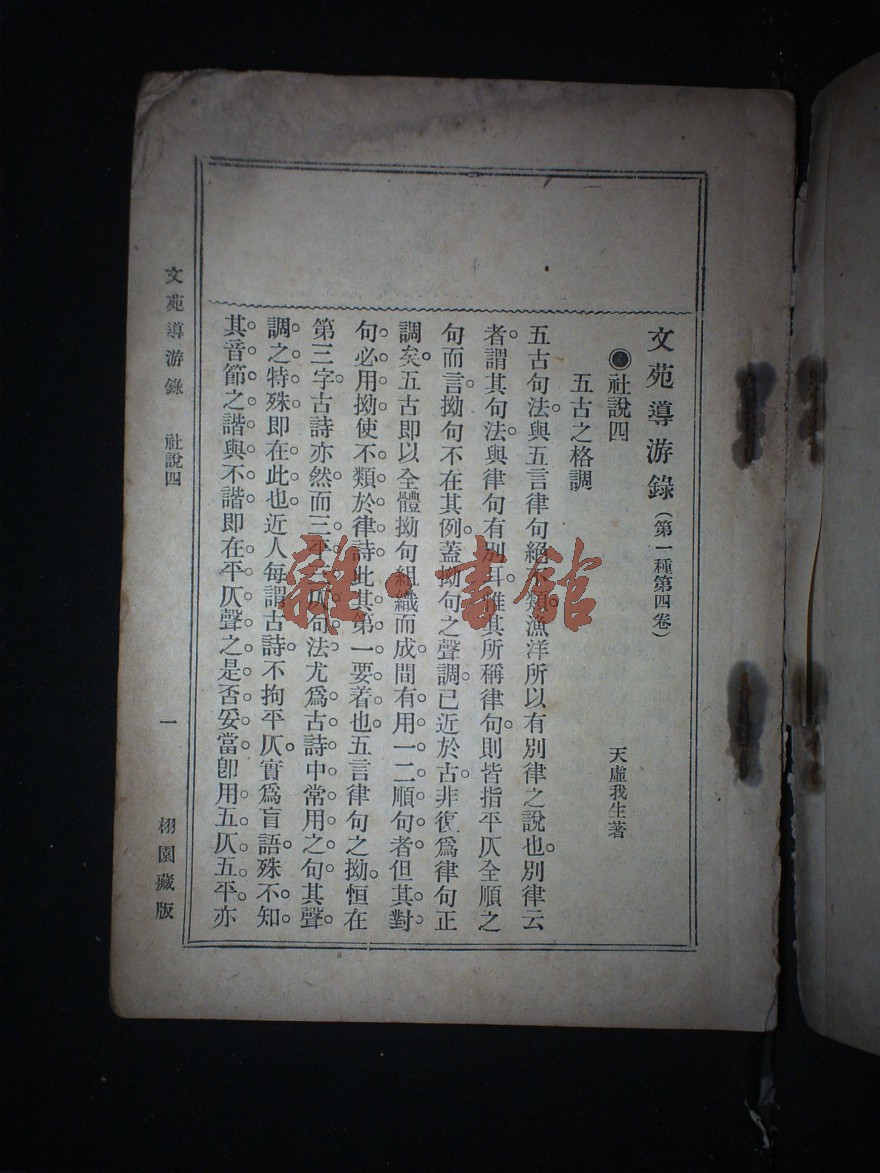 文苑導游錄（第一種第四卷）
●社說四
天虛我生著
五古之格調
五古句法與五言律句絕不類漁洋所以有別律之說也別律云
者謂其句法與律句有別耳惟其所稱律句則皆指平仄全順之
句而言拗句不在其例蓋拗句之聲調已近於古非復爲律句正
調矣五古即以全體拗句組織而成間有用一二順句者但其對
句必用拗使不類於律詩此其第一要着也五言律句之拗恒在
第三字古詩亦然而三平三仄句法尤爲古詩中常用之句其聲
調之特殊即在此也近人每謂古詩不拘平仄實爲盲語殊不知
其音節之諧與不諧即在平仄聲之是否妥當卽用五仄五平亦
文苑導游錄 社說四 一 栩園藏版
雜·書館